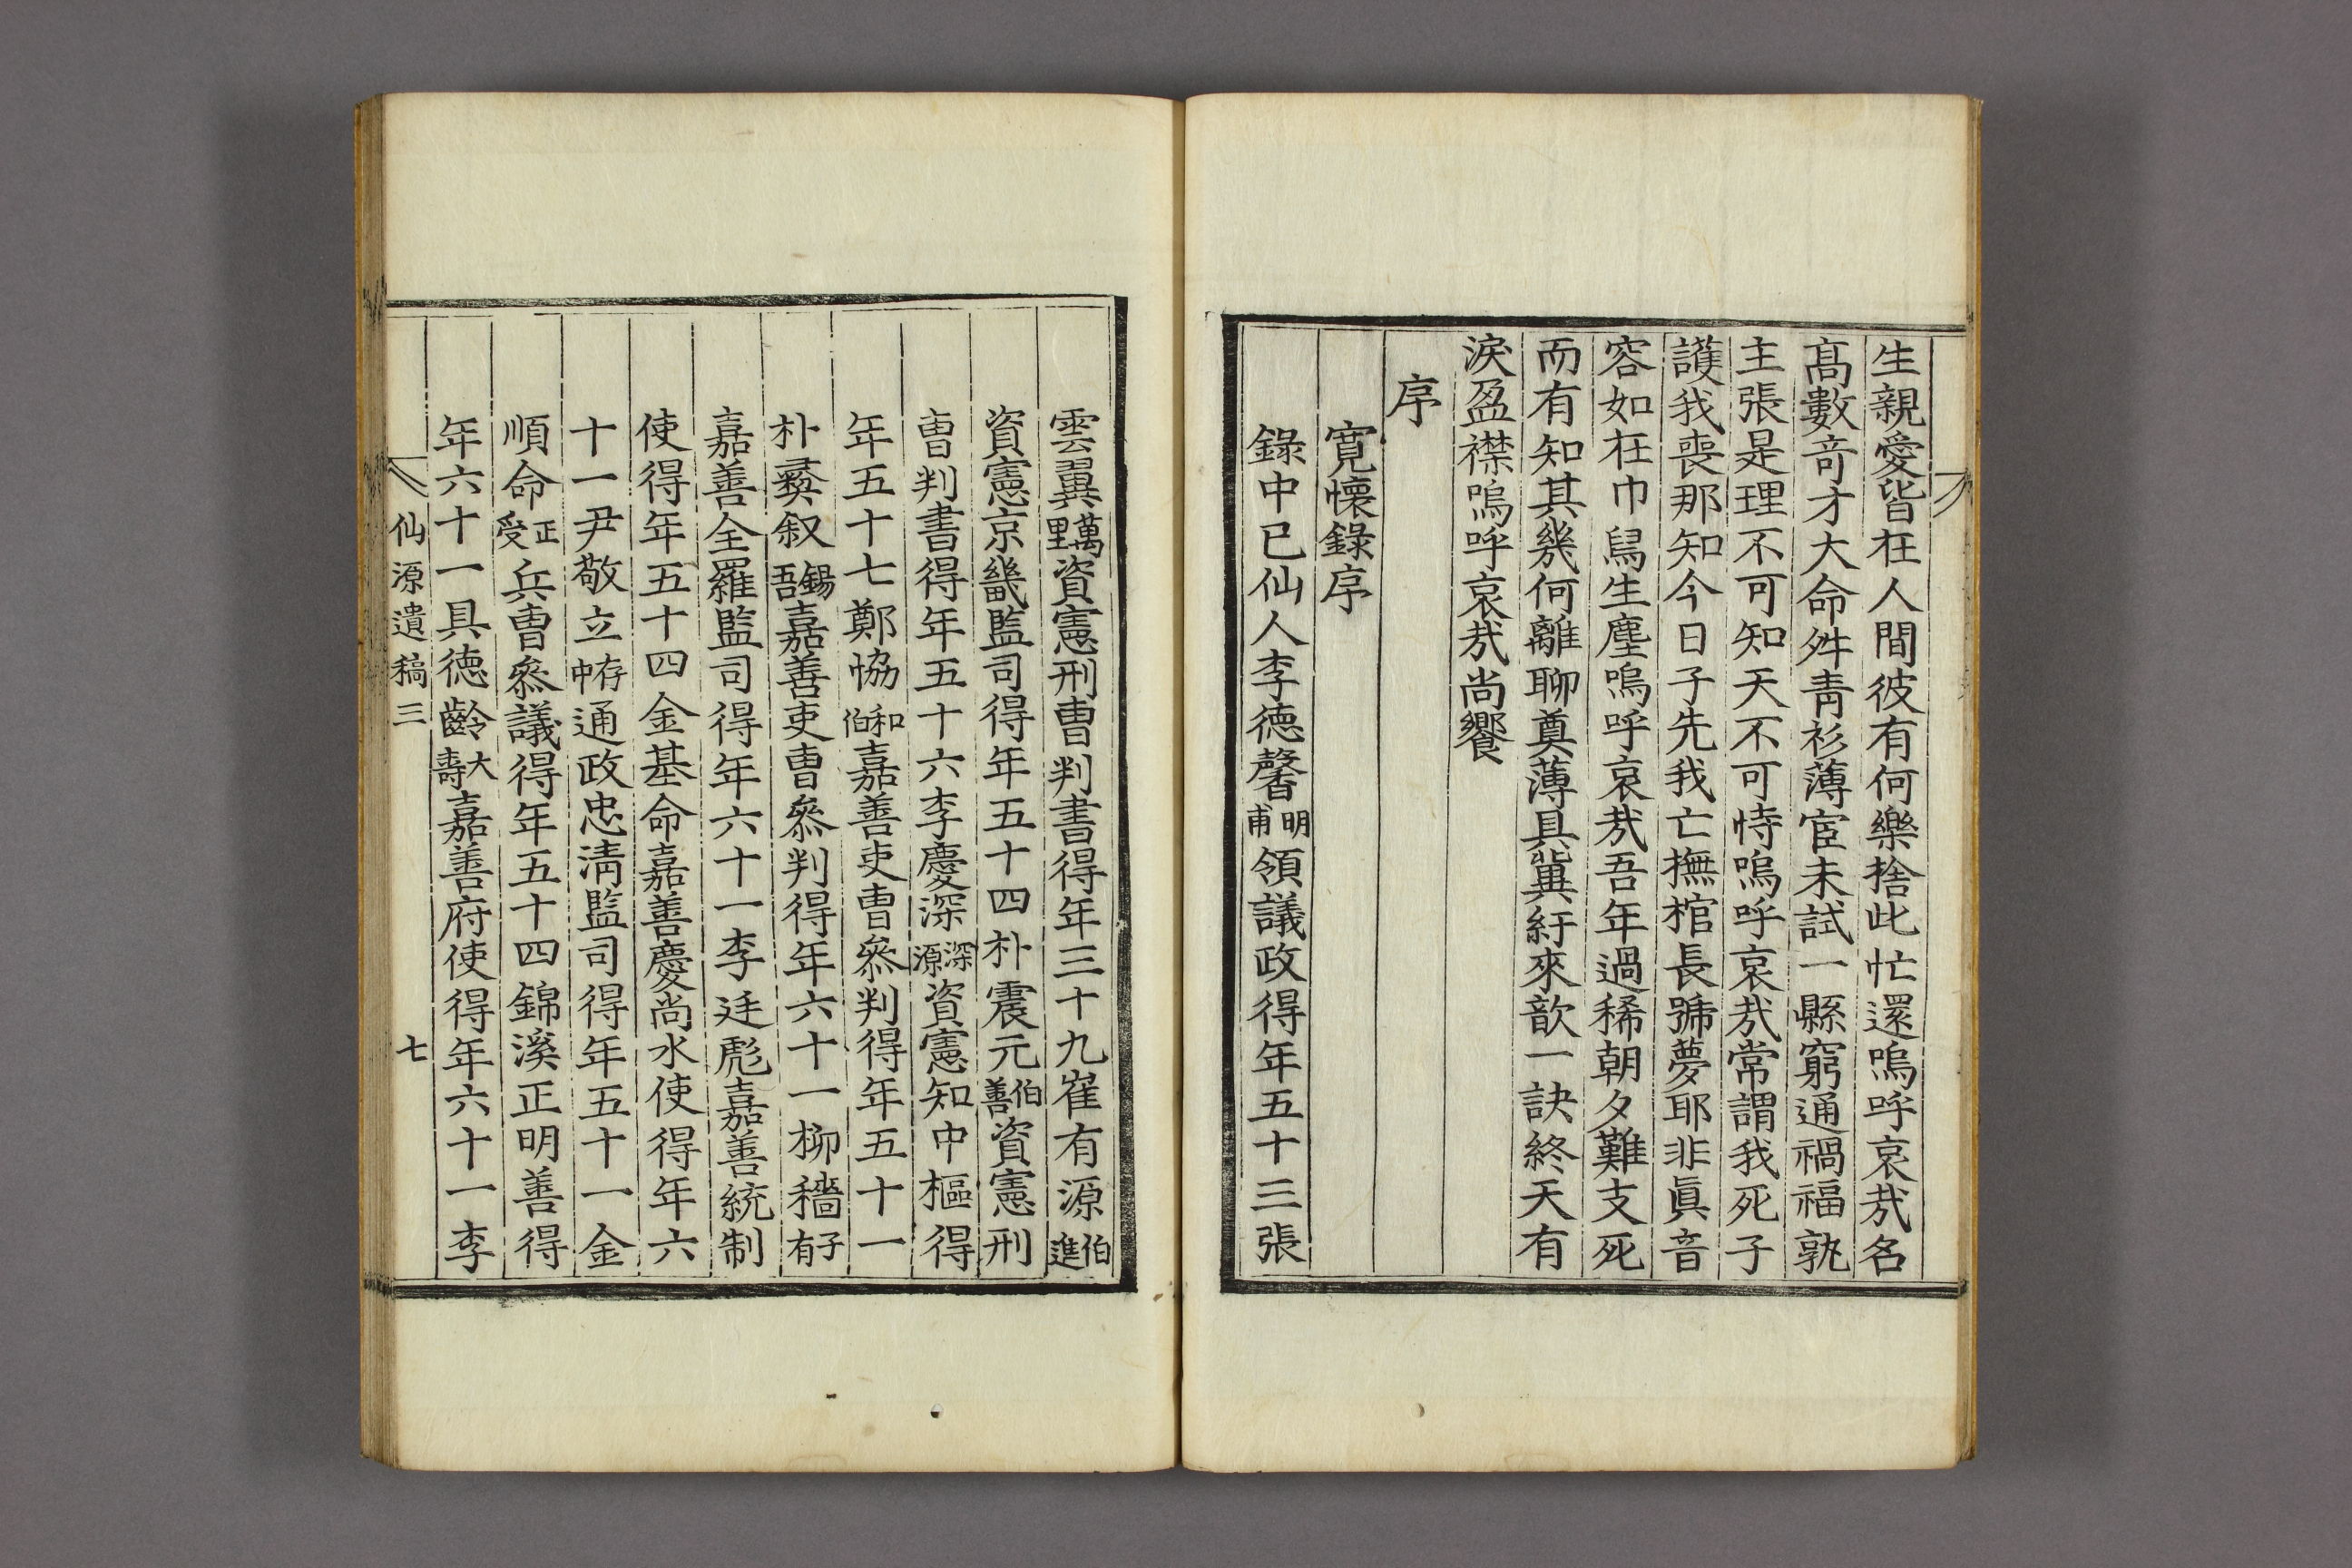 生親愛皆在人間彼有何樂捨此忙還嗚呼哀哉名
高數奇才大命舛靑衫薄宦未試一縣窮通禍福孰
主張是理不可知天不可恃嗚呼哀哉常謂我死子
護我喪那知今日子先我亡撫棺長號夢耶非眞音
容如在巾舄生塵嗚呼哀哉吾年過稀朝夕難支死
而有知其幾何離聊奠薄具冀紆來歆一訣終天有
淚盈襟嗚呼哀哉尚饗
序
寬懷錄序
錄中已仙人李德馨明甫領議政得年五十三張
雲翼萬里資憲刑曹判書得年三十九崔有源伯進
資憲京畿監司得年五十四朴震元伯善資憲刑
曹判書得年五十六李慶深深源資憲知中樞得
年五十七鄭協和伯嘉善吏曹參判得年五十一
朴彛叙錫吾嘉善吏曹參判得年六十一柳穡子有
嘉善全羅監司得年六十一李廷彪嘉善統制
使得年五十四金基命嘉善慶尚水使得年六
十一尹敬立存中通政忠淸監司得年五十一金
順命正受兵曹參議得年五十四錦溪正明善得
年六十一具德齡大壽嘉善府使得年六十一李
仙源遺稿三 七